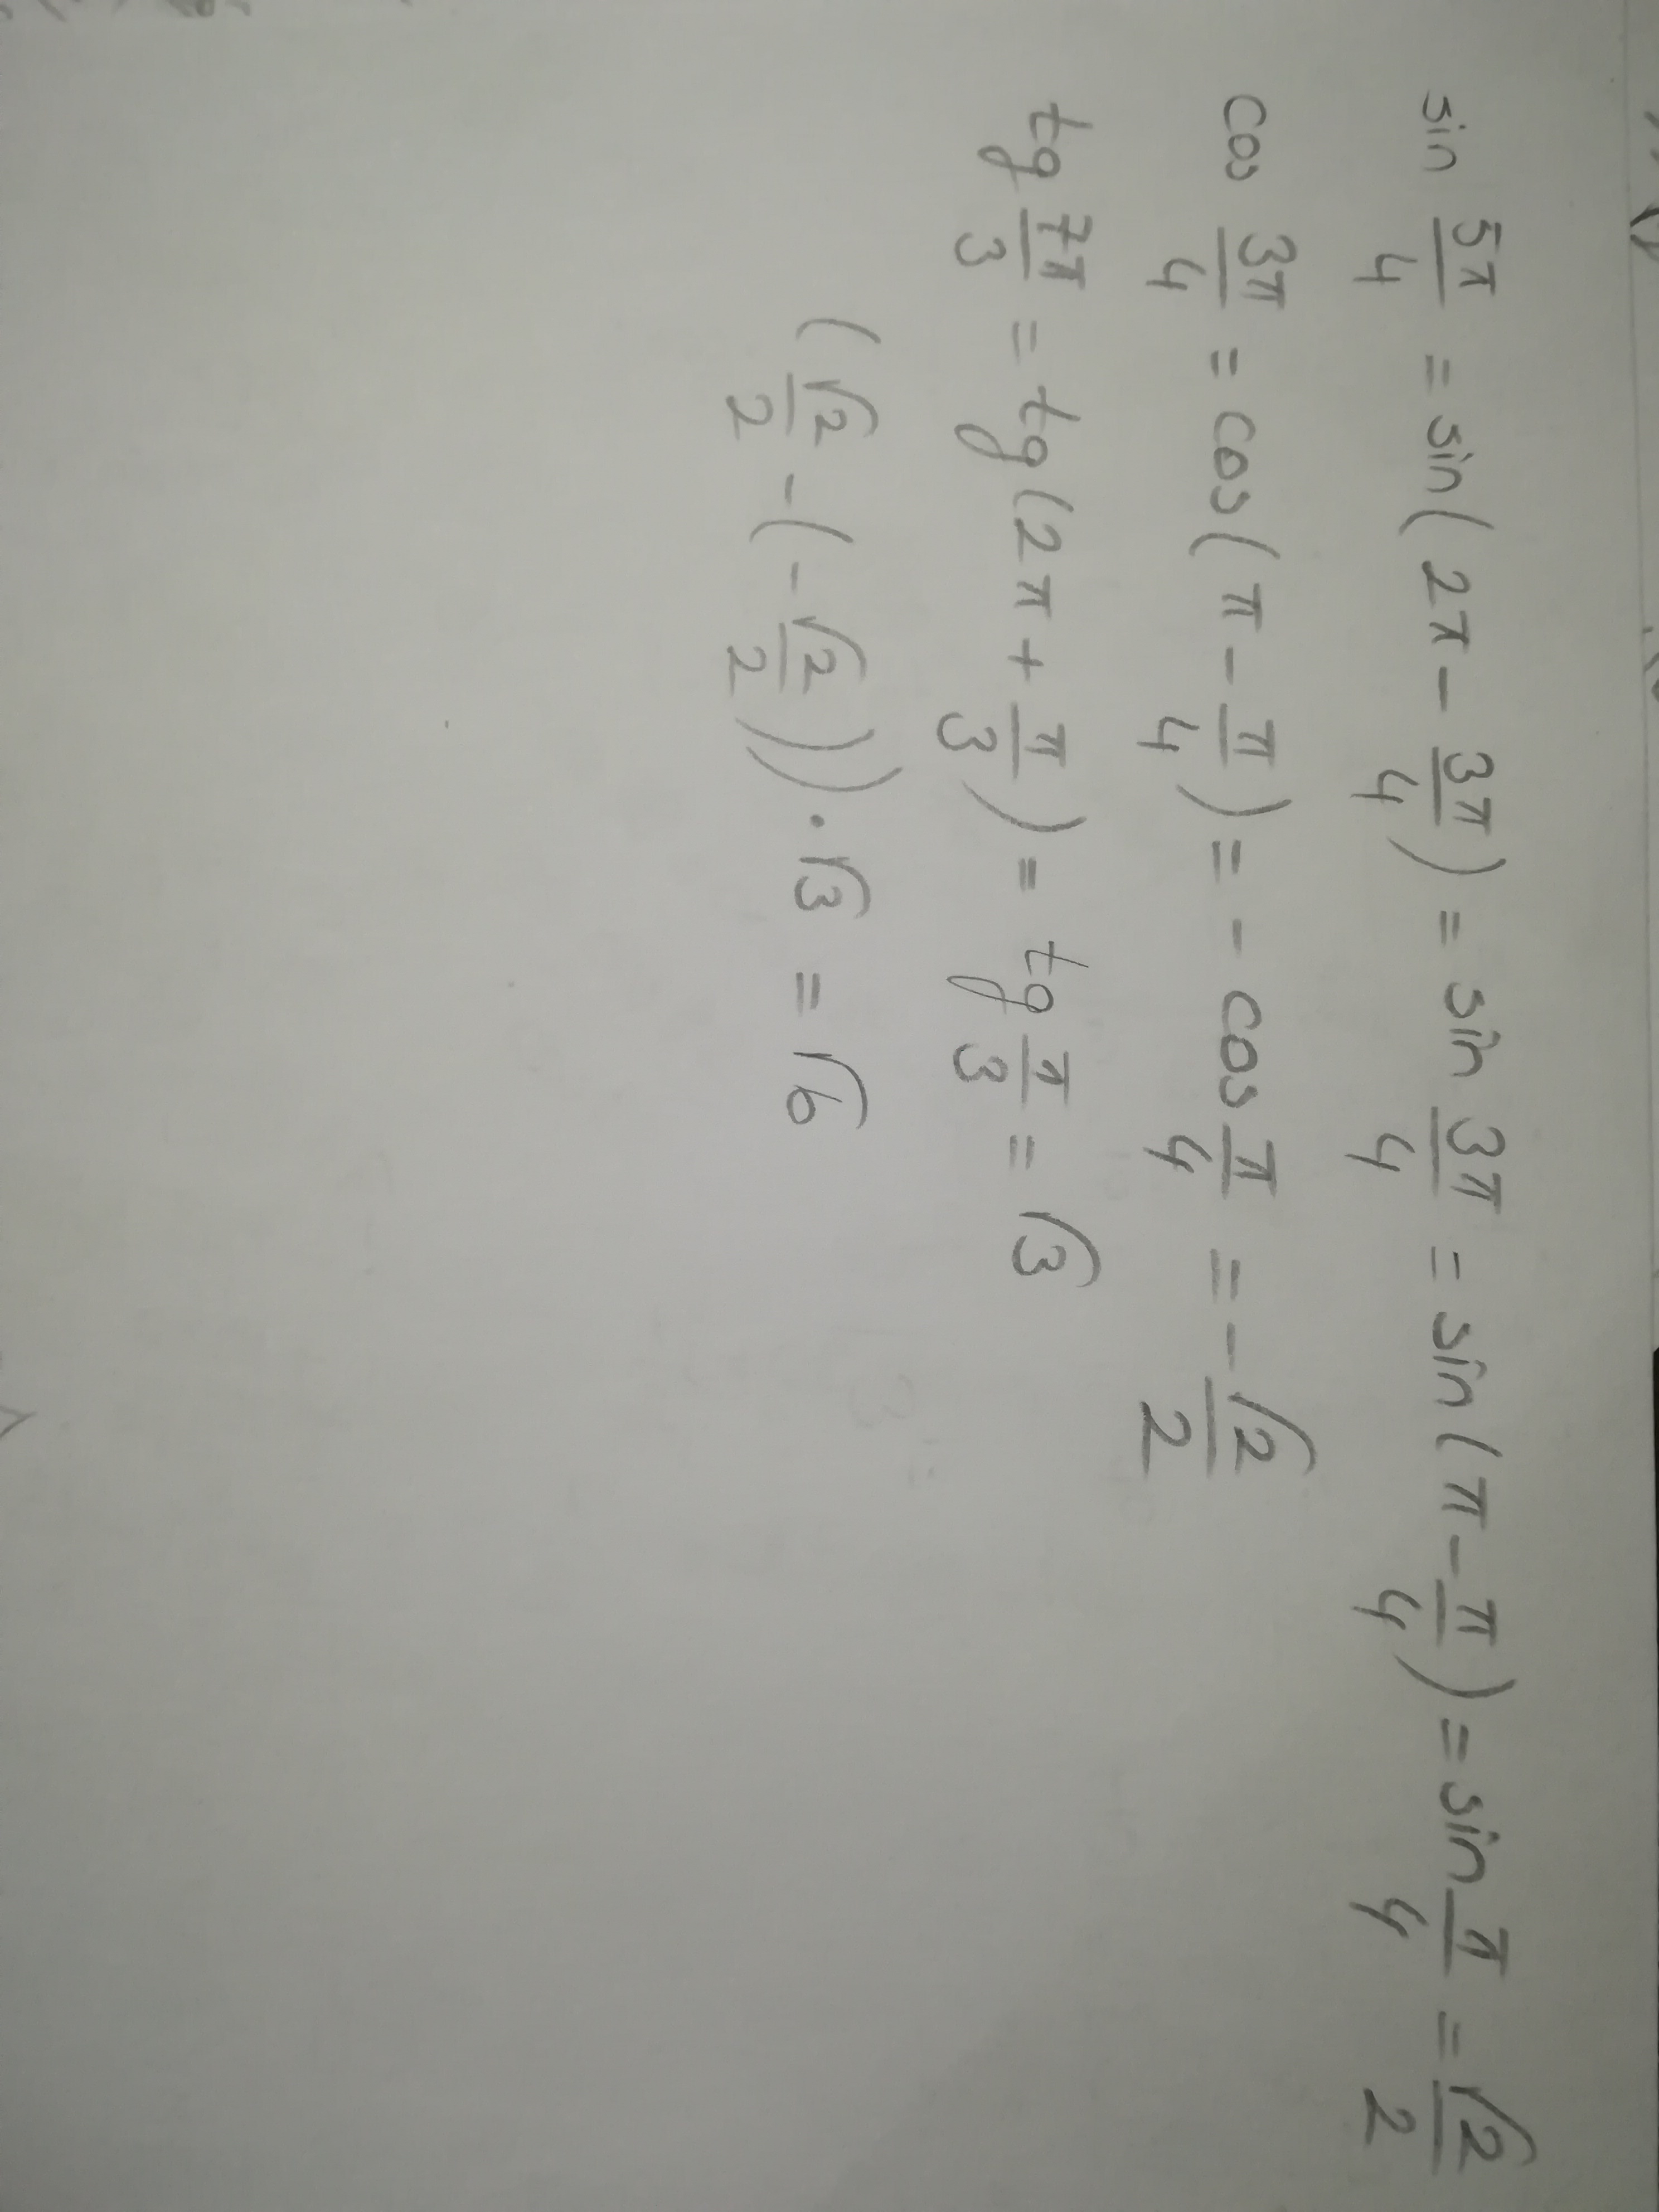 sin 5π/4 = sin(2π - 3π/4) = sin 3π/4 = sin(π - π/4) = sin π/4 = √2/2
cos 3π/4 = cos(π - π/4) = - cos π/4 = - √2/2
tg 7π/3 = tg(2π + π/3) = tg π/3 = √3
(√2/2 - (- √2/2)) · √3 = √6